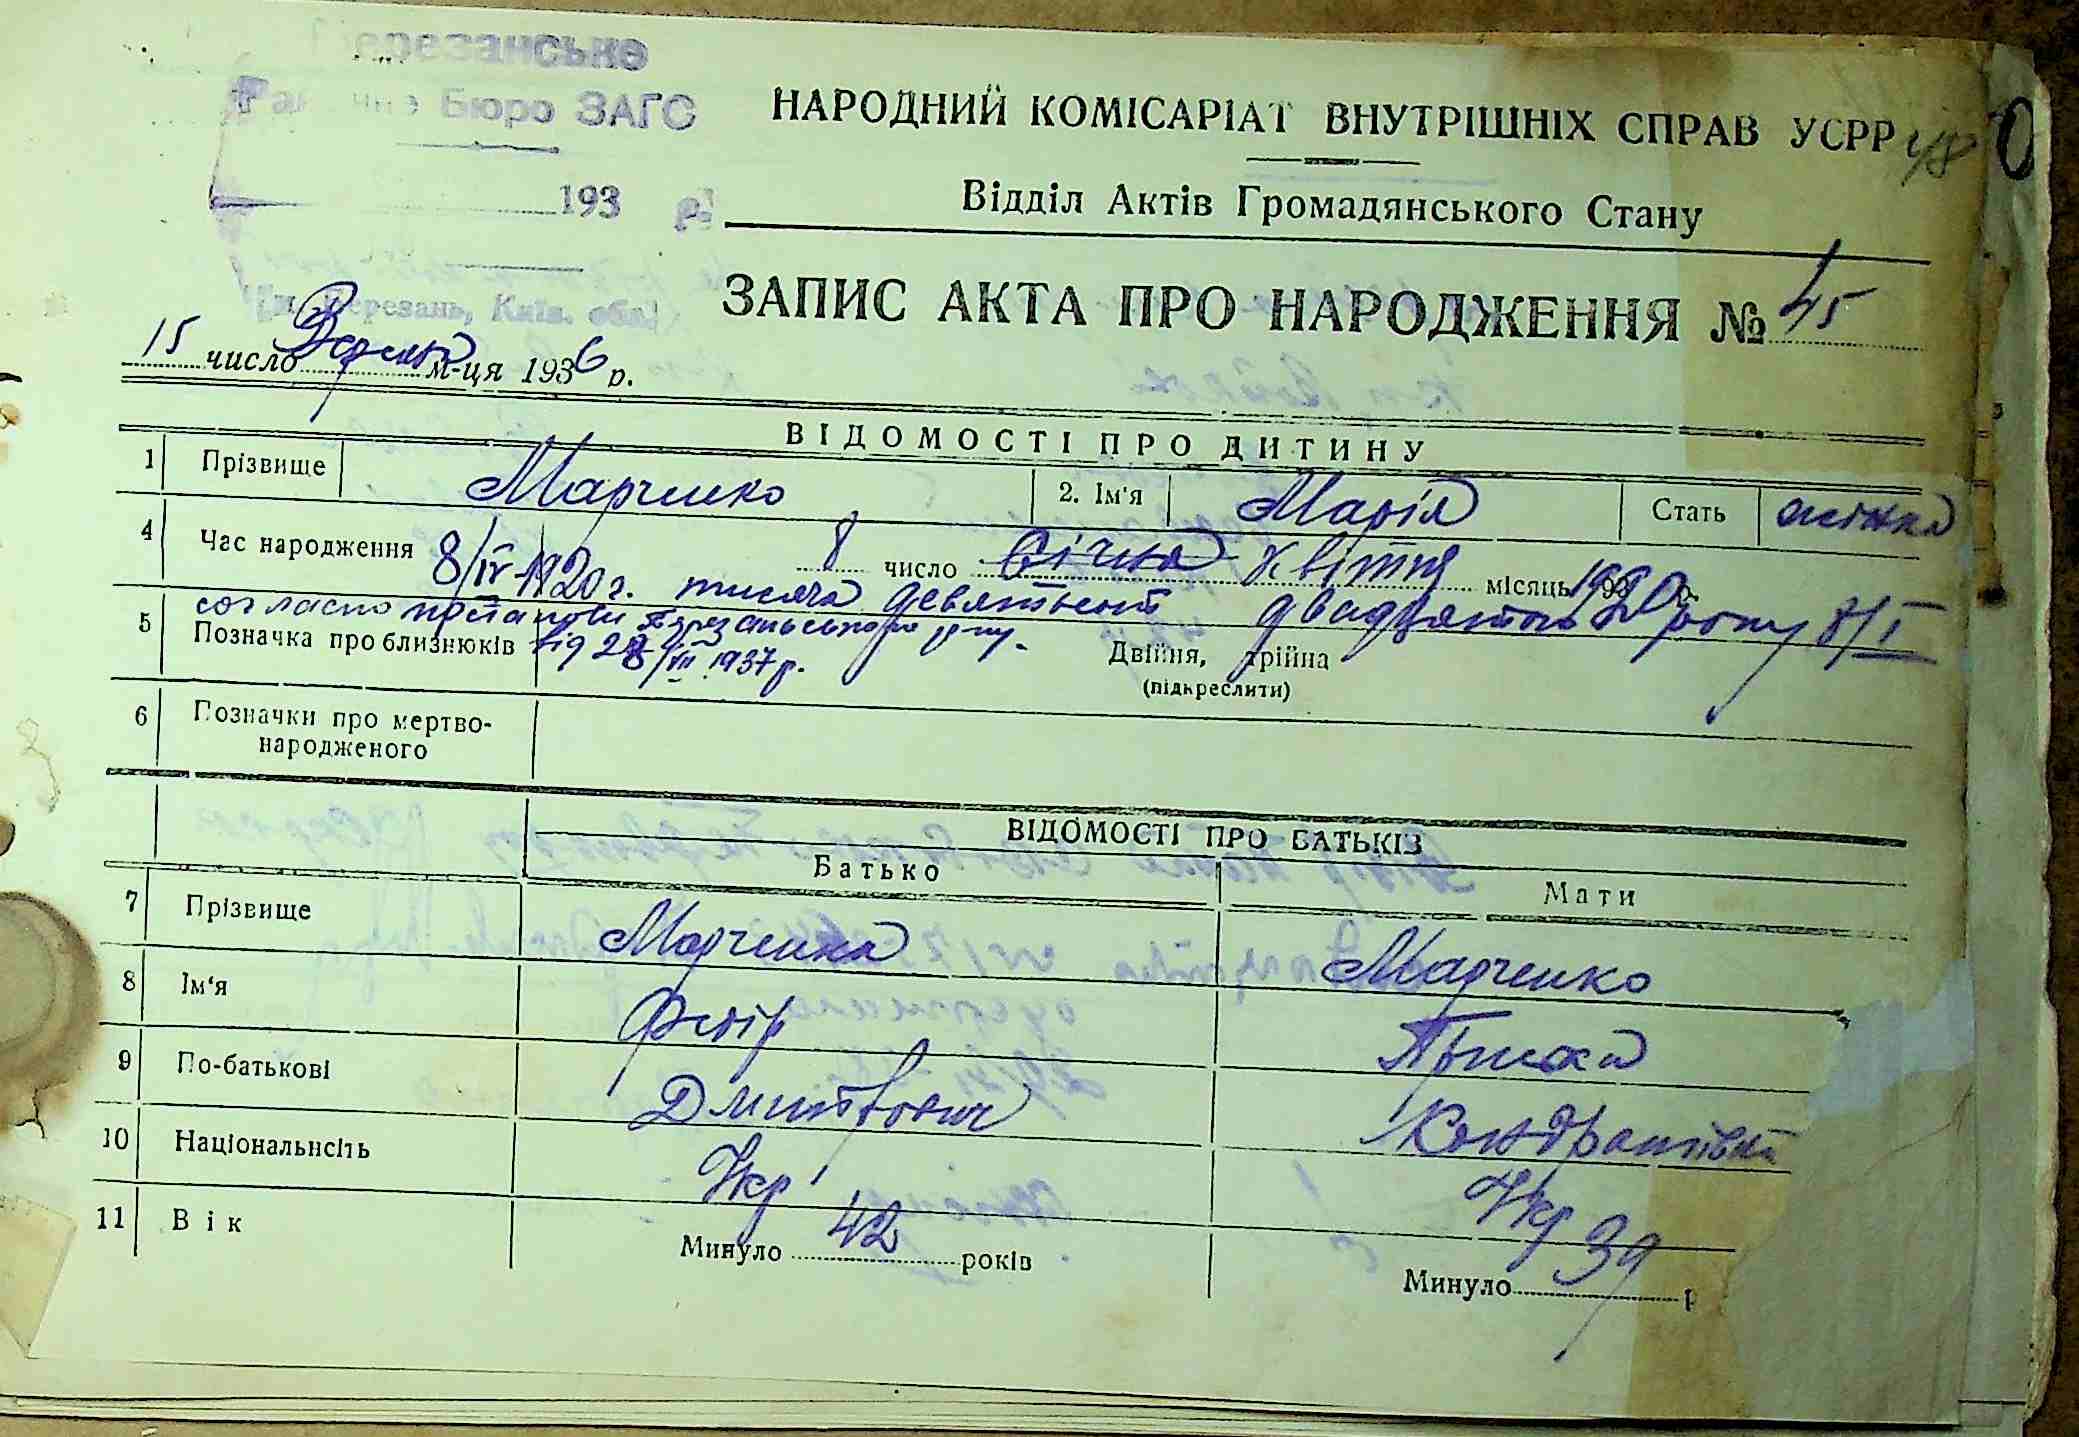 Березанське
Бюро ЗАГС
НАРОДНИЙ КОМІСАРІАТ ВНУТРІШНІХ СПРАВ УСРР 48
193 р.
Відділ Актів Громадянського Стану
м. Березань, Київ. обл.
ЗАПИС АКТА ПРО НАРОДЖЕННЯ № 45
15 число м-ця 1936 р.
ВІДОМОСТІ ПРО ДИТИНУ
1 Прізвище Марченко 2. Ім'я Марія Стать жінка
4 Час народження 8 число Січня Квітня місяць 1920 р.
8/IV-1920 г. тисяча девятьсот двадцятого року 8/I
согласно постанови Березанського
5 Позначка про близнюків від 28/VII 1937 р. Двійня, трійна
(підкреслити)
6 Позначки про мертво-
народженого
ВІДОМОСТІ ПРО БАТЬКІВ
Батько Мати
7 Прізвище Марченко Марченко
8 Ім'я Федір
9 По-батькові Дмитрович Кондратівна
10 Національність Укр Укр
11 Вік Минуло 42 років Минуло 39 р